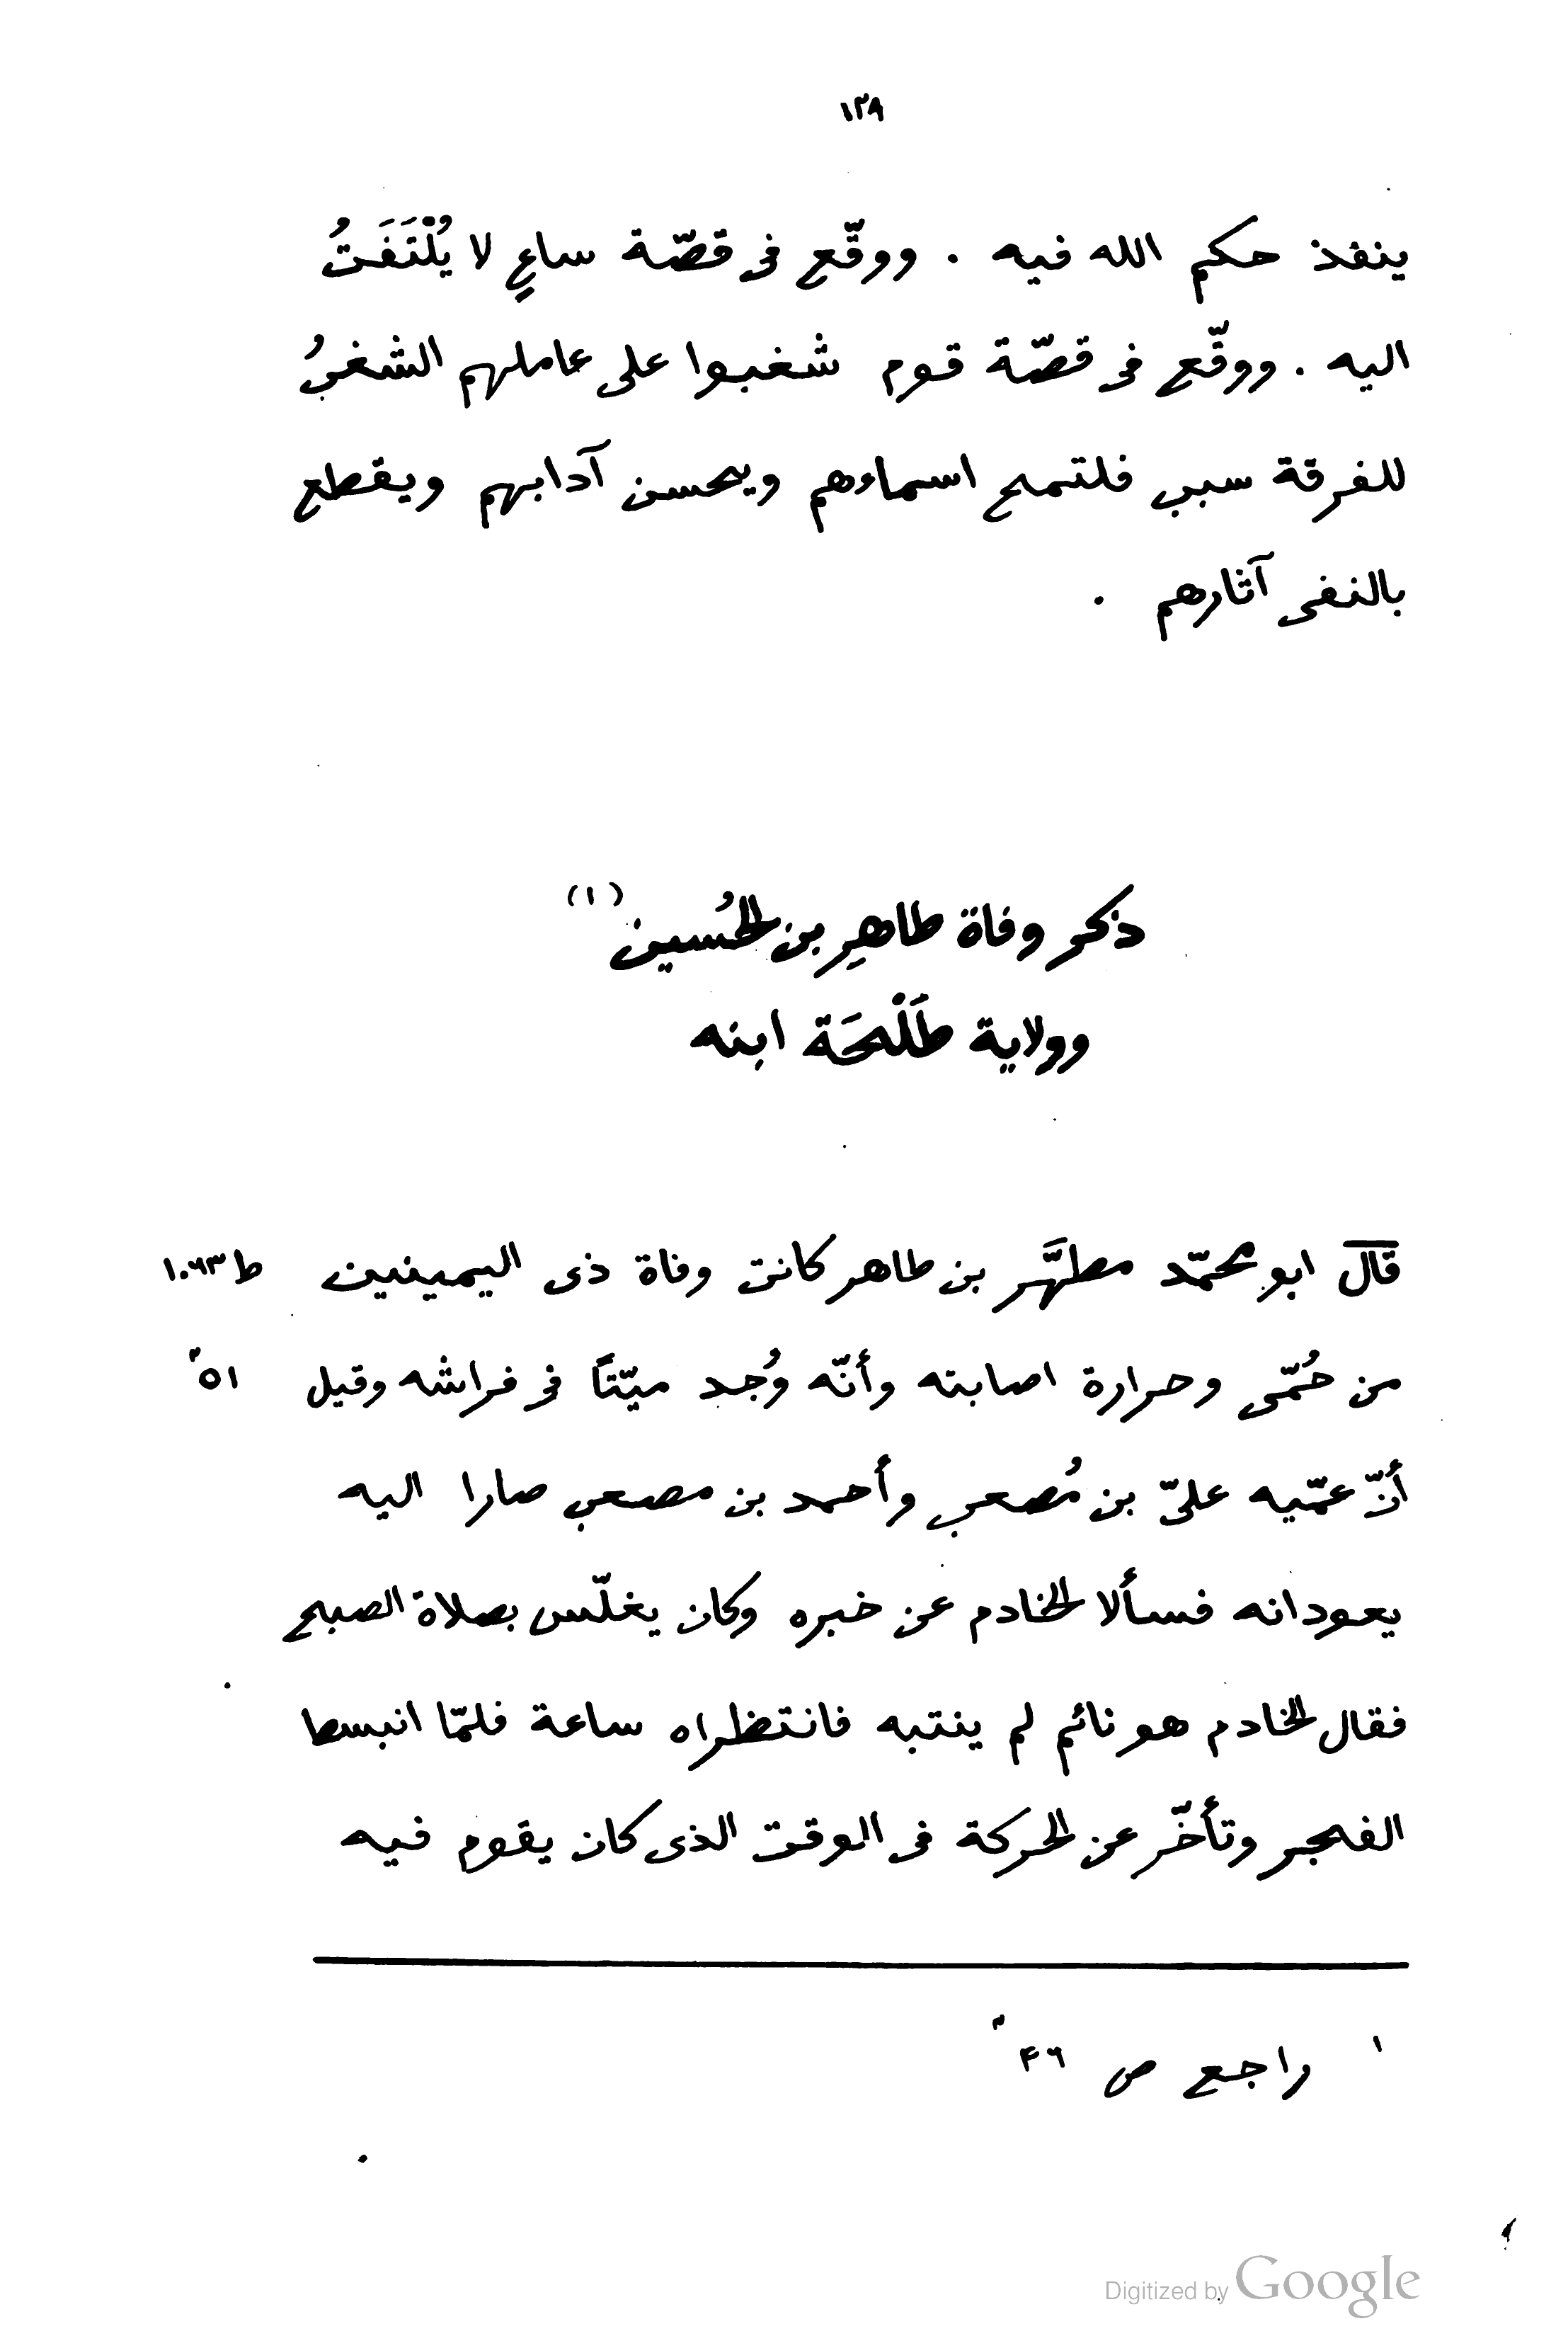 ١٢٨
ينفذ حكم الله فيه . ووقّع فى قصّة ساعٍ لا يُلْتَفَتُ
اليه . ووقّع فى قصّة قوم شغبوا على عاملهم الشغبُ
للفرقة سبب فلتمح اسماءهم ويحسن آدابهم ويقطع
بالنفى آثارهم .
ذكر وفاة طاهِر بن الحُسين (١)
وولاية طَلْحَة ابنه
قال ابو محمّد مطهَّر بن طاهر كانت وفاة ذى اليمينين ط ١٠٦٣
من حُمّى وحرارة اصابته وأنّه وُجد ميّتًا فى فراشه وقيل ٥١
أنّ عمّيه علىّ بن مُصعب وأحمد بن مصعب صارا اليه
يعودانه فسألا الخادم عن خبره وكان يغلّس بصلاة الصبح
فقال الخادم هو نائم لم ينتبه فانتظراه ساعة فلمّا انبسط
الفجر وتأخّر عن الحركة فى الوقت الذى كان يقوم فيه
١ راجع ص ٤٦
Digitized by Google